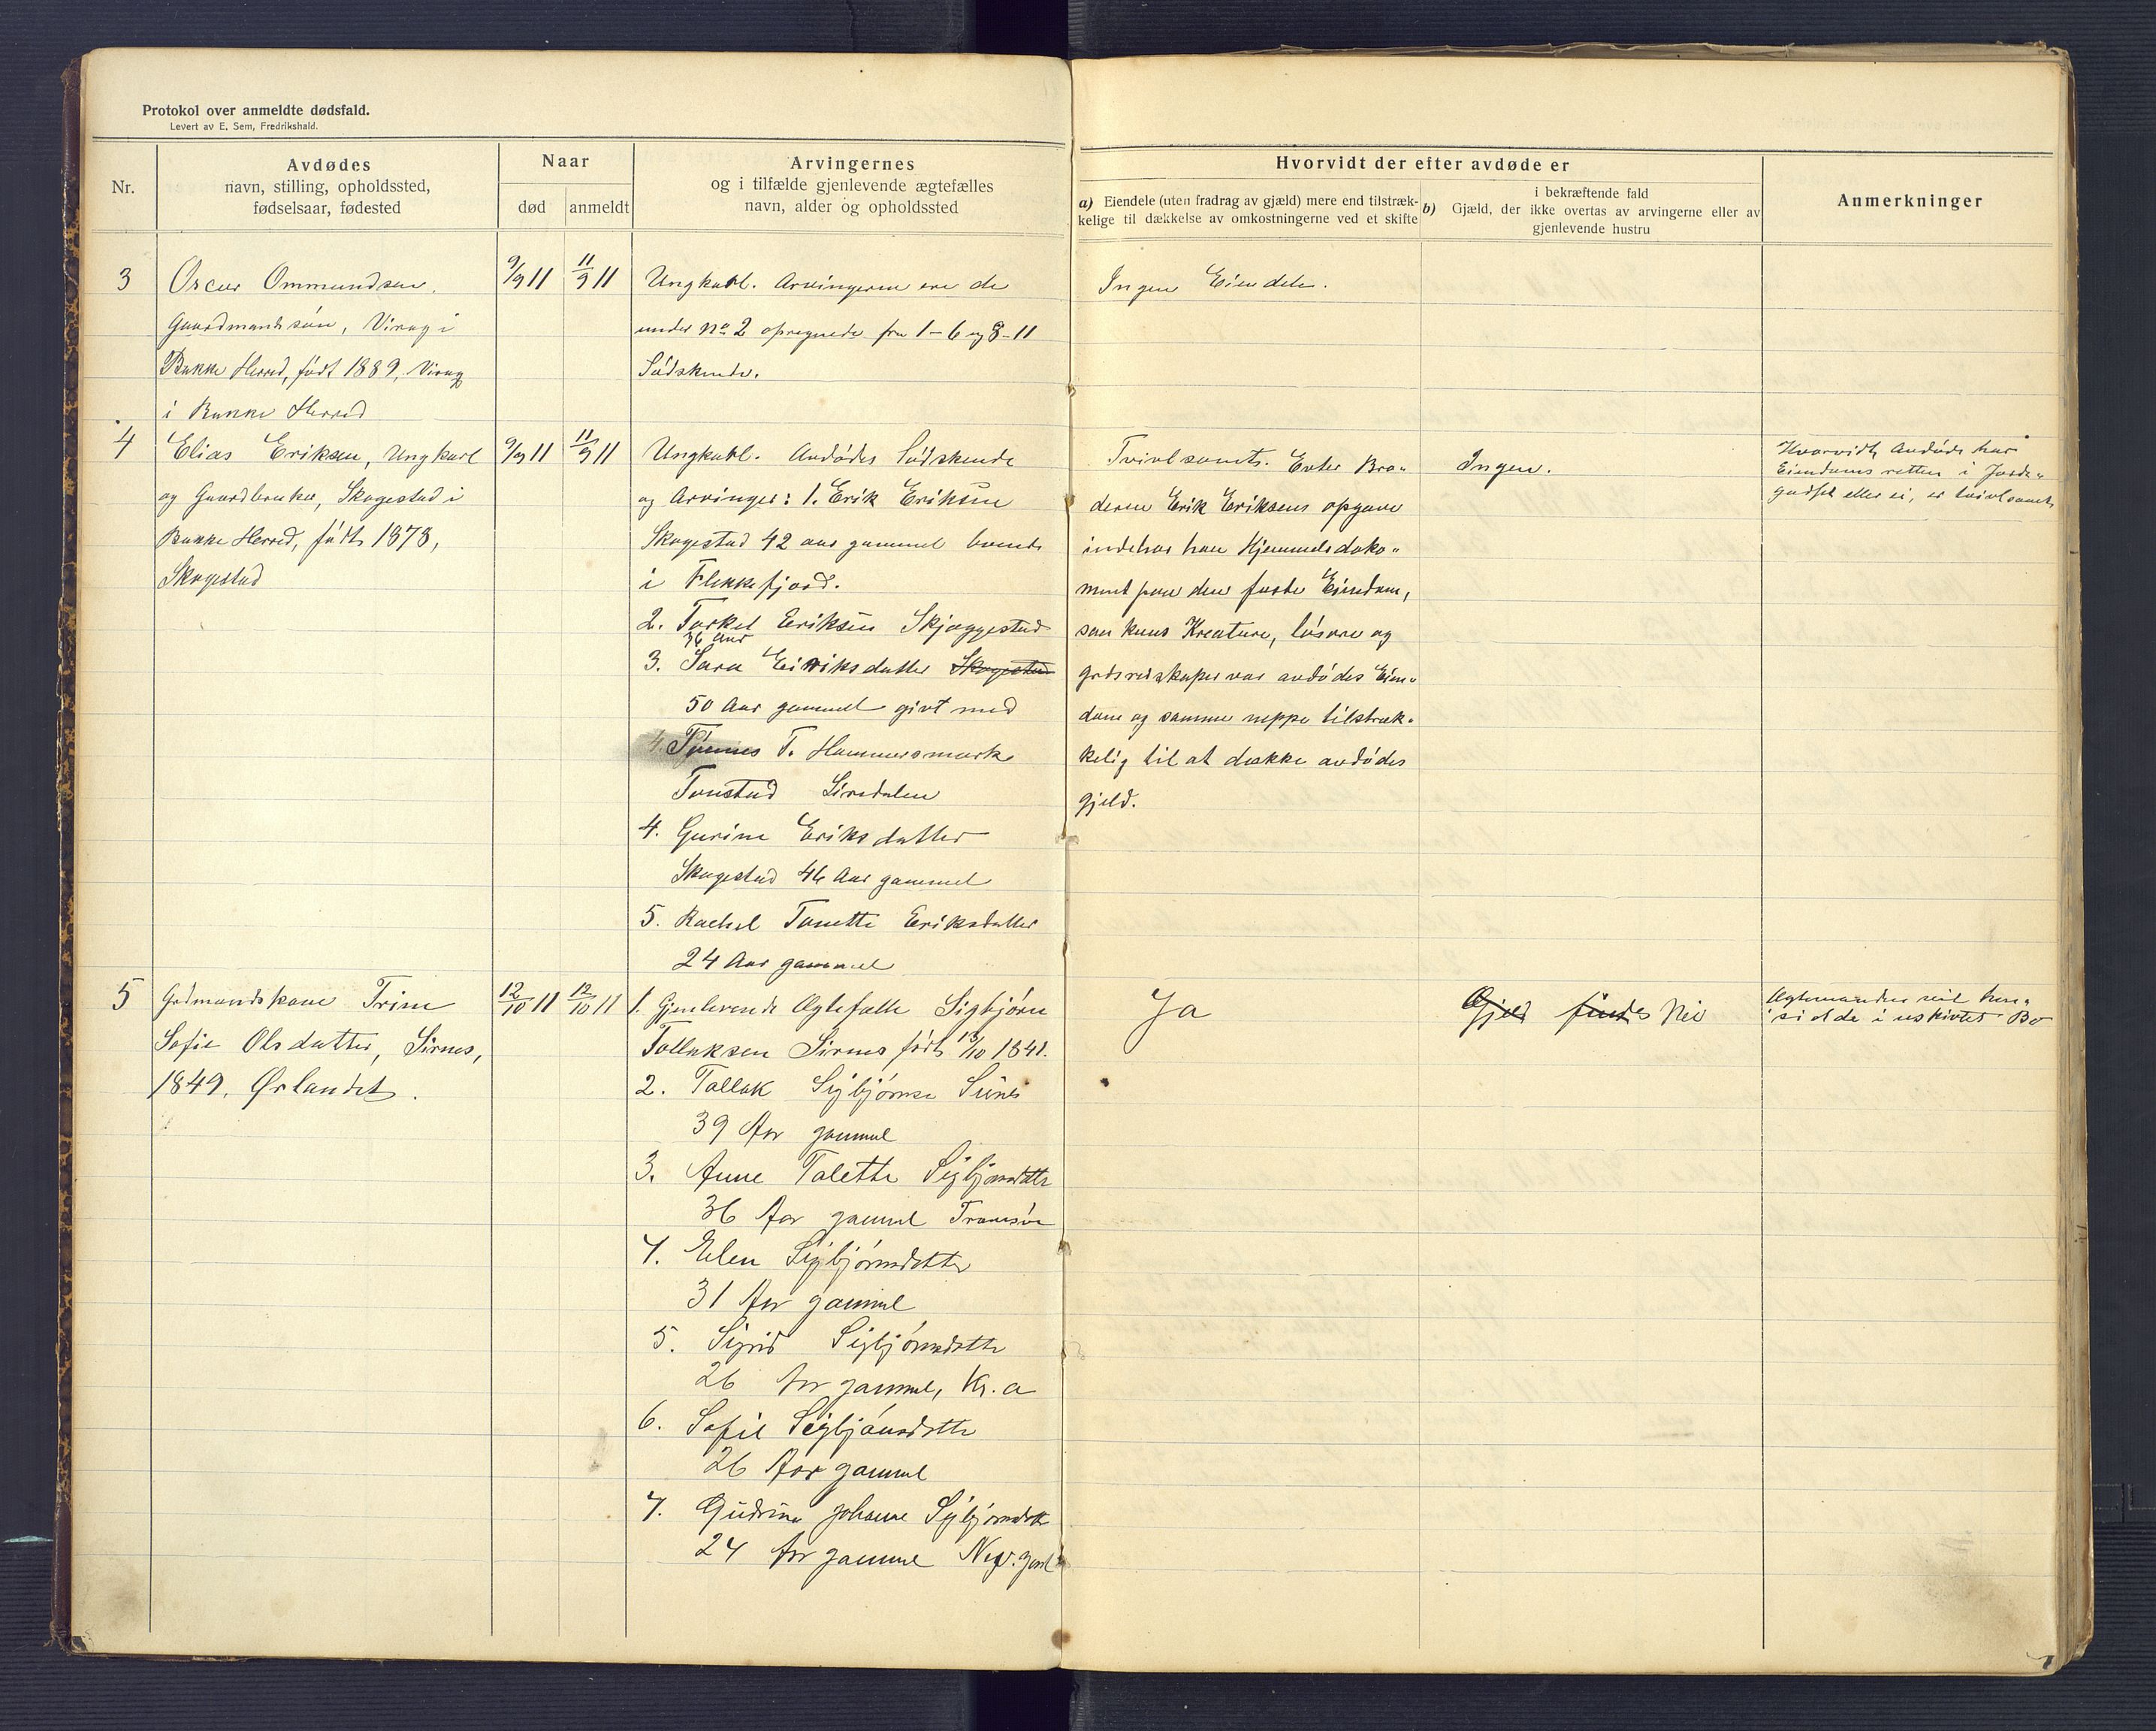 Protokol over anmeldte dødsfald.
Levert av E. Sem, Fredrikshald.
Nr.
Avdødes
navn, stilling, opholdssted,
fødselsaar, fødested
Naar
død
anmeldt
Arvingernes
og i tilfælde gjenlevende ægtefælles
navn, alder og opholdssted
Hvorvidt der efter avdøde er
a) Eiendele (uten fradrag av gjæld) mere end tilstræk-
kelige til dækkelse av omkostningerne ved et skifte
i bekræftende fald
b) Gjæld, der ikke overtas av arvingerne eller av
gjenlevende hustru
Anmerkninger
3
Oscar Ommundsen,
Gaardmandssön, Virag i
Bakke Herred, födt 1889, Virag
i Bakke Herred
9/9 11
11/9 11
Ungkarl. Arvingerne ere de
under No 2 opregnede fra 1-6 og 8-11
Södskende.
Ingen Eiendele.
4
Elias Eriksen, Ungkarl
og Gaardbruker, Skagestad i
Bakke Herred, födt 1878,
Skagestad
9/9 11
11/9 11
Ungkarl. Avdödes Södskende
og Arvinger: 1. Erik Eriksen
Skagestad 42 aar gammel boende
i Flekkefjord.
2. Torkel Eriksen Skjæggestad
36 Aar
3. Sara Eiriksdatter Skagestad
50 Aar gammel givt med
4. Tönnes T. Hammersmark
Tonstad Siredalen
4. Gurine Eriksdatter
Skagestad 46 Aar gammel
5. Rachel Tonette Eriksdatter
24 Aar gammel
Tvivlsomt. Efter Bro-
deren Erik Eriksens opgave
indehar han Hjemmelsdoko-
ment paa den faste Eiendom,
saa kuns Kreature, lösöre og
gardsredskaper var avdödes Eien-
dom og samme neppe tilstræk-
kelig til at dække avdödes
gjeld.
Ingen.
Hvorvidt Avdöde har
Eiendomsretten i Jorde-
godset eller ei, er tvivlsomt
5
Gardmandskone Trine
Sofie Olsdatter, Sirnes,
1849. Ørlandet.
12/10 11
12/10 11
1. Gjenlevende Ægtefælle Sigbjörn
Tollaksen Sirnes födt 13/10 1841.
2. Tollak Sigbjörnsen Sirnes
39 Aar gammel
3. Anne Talette Sigbjörnsdatter
36 Aar gammel Tromsö
4. Elen Sigbjörnsdatter
31 Aar gammel
5. Sigrid Sigbjörnsdatter
26 Aar gammel, Kr.a
6. Sofie Sigbjörnsdatter
26 Aar gammel
7. Gudrun Johanne Sigbjörnsdatter
24 Aar gammel
Ja
Gjeld findes Nei
Ægtemanden vil hen-
sidde i uskiftet Bo